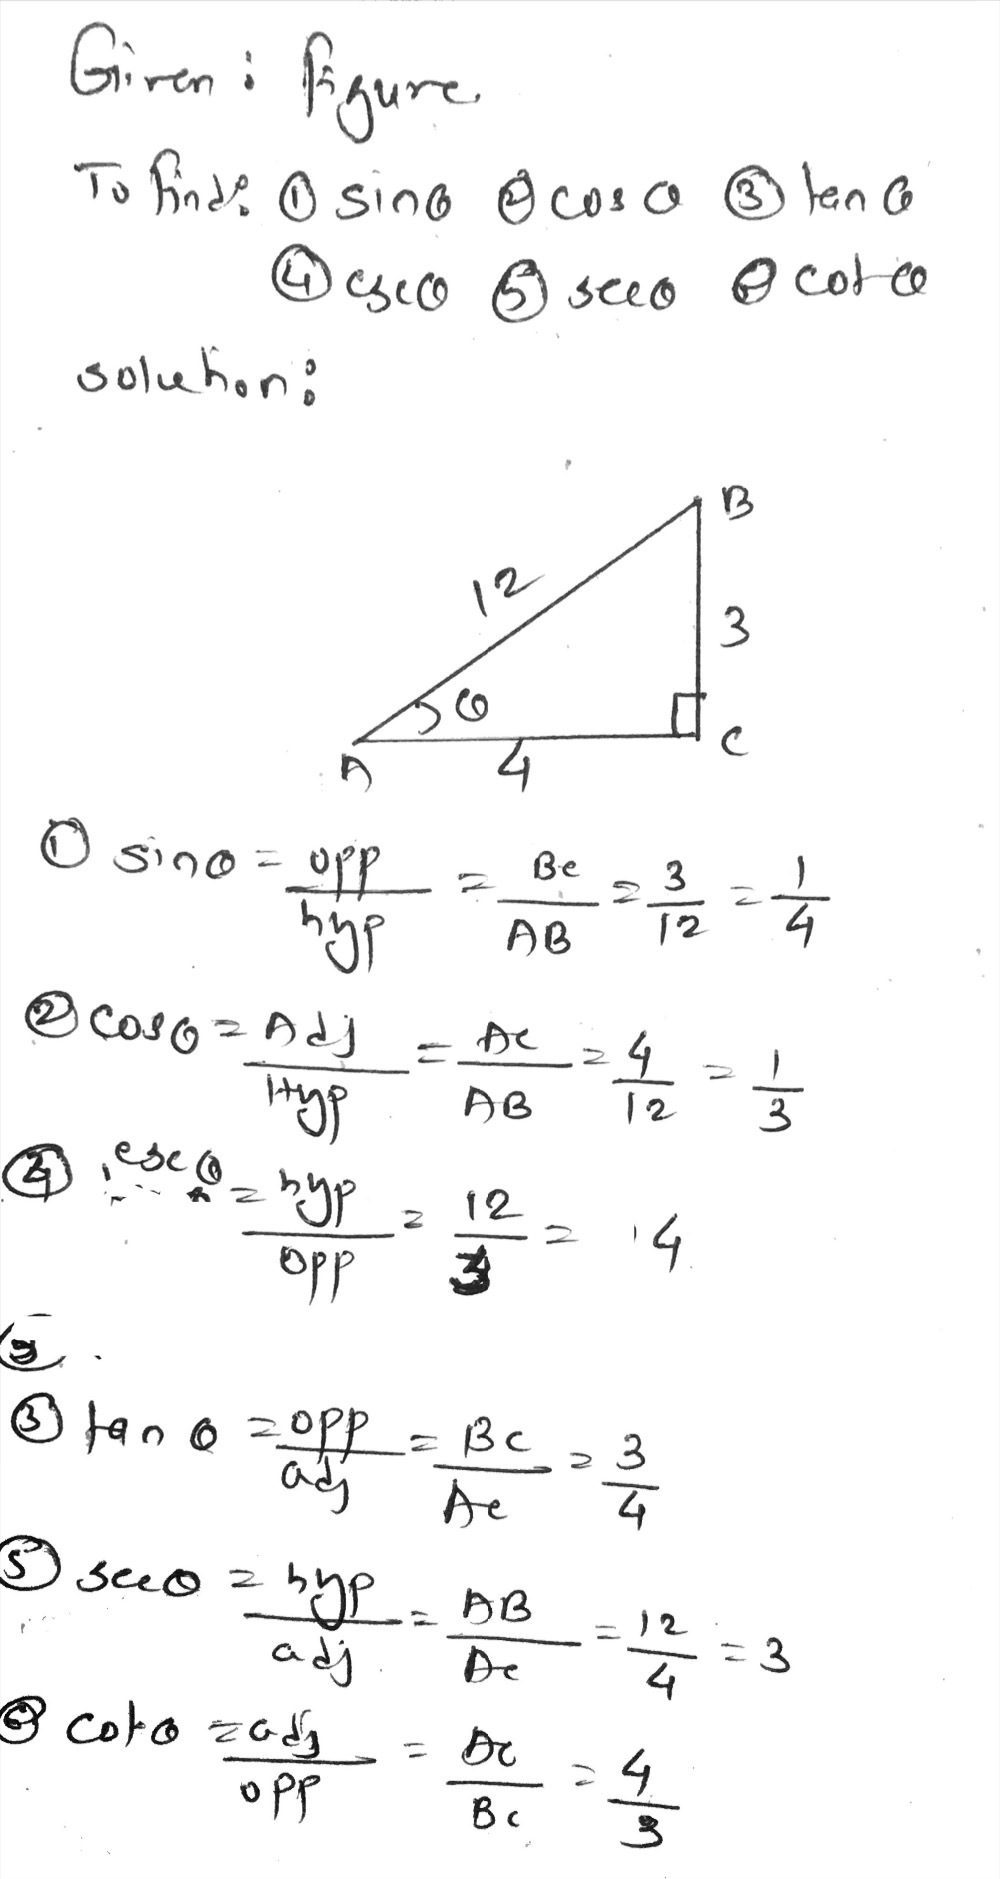 Given : figure
To find: ① sinθ ② cosθ ③ tanθ
④ cscθ ⑤ secθ ⑥ cotθ
solution:
B
12
3
θ
A
4
C
① sinθ = opp/hyp = BC/AB = 3/12 = 1/4
② cosθ = Adj/Hyp = AC/AB = 4/12 = 1/3
④ cscθ = hyp/opp = 12/3 = 4
⑤ .
③ tanθ = opp/adj = BC/AC = 3/4
⑤ secθ = hyp/adj = AB/AC = 12/4 = 3
⑥ cotθ = adj/opp = AC/BC = 4/3